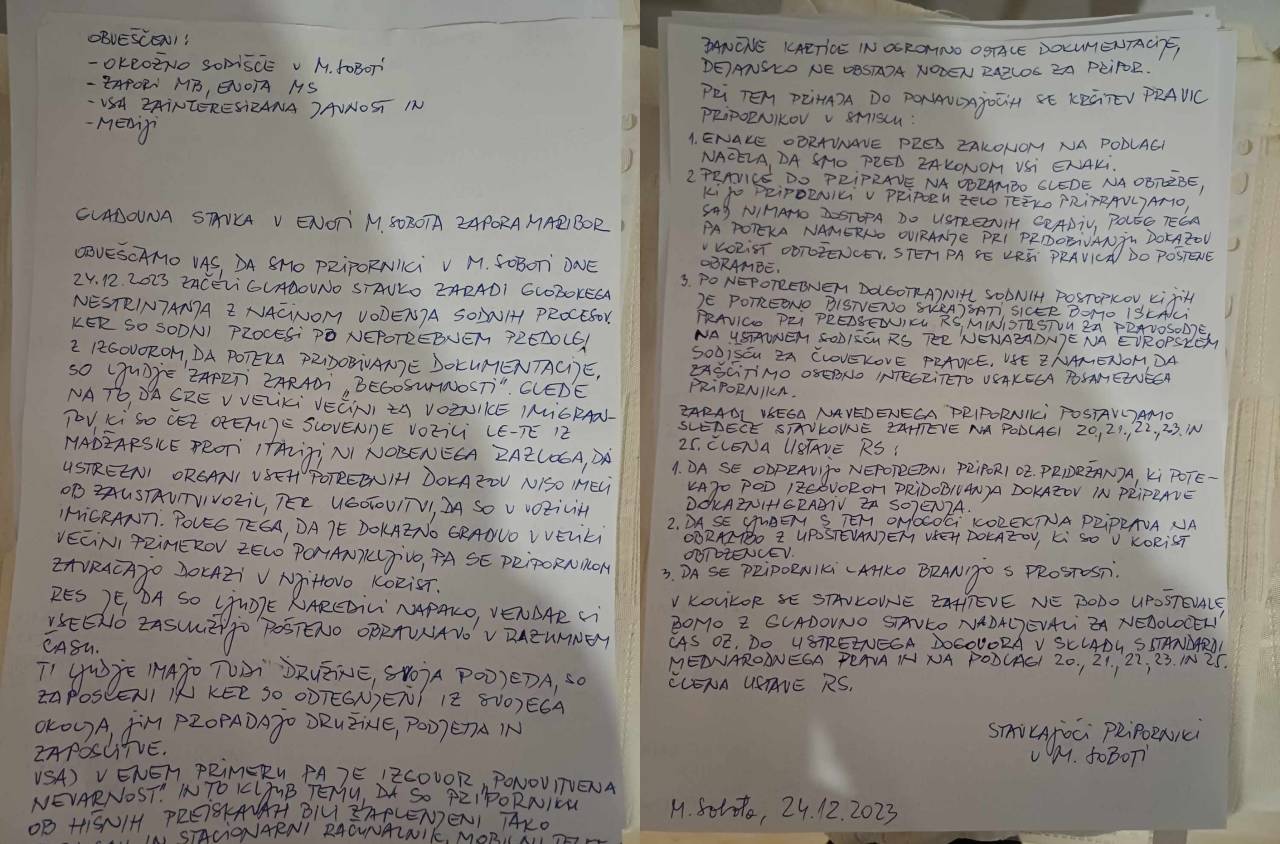 OBVEŠČENI:
- OKROŽNO SODIŠČE V M. SOBOTI
- ZAPORI MB, ENOTA MS
- VSA ZAINTERESIRANA JAVNOST IN
- MEDIJI
GLADOVNA STAVKA V ENOTI M. SOBOTA ZAPORA MARIBOR
OBVEŠČAMO VAS, DA SMO PRIPORNIKI V M. SOBOTI DNE
24.12.2023 ZAČELI GLADOVNO STAVKO ZARADI GLOBOKEGA
NESTRINJANJA Z NAČINOM VODENJA SODNIH PROCESOV.
KER SO SODNI PROCESI PO NEPOTREBNEM PREDOLGI,
Z IZGOVOROM, DA POTEKA PRIDOBIVANJE DOKUMENTACIJE,
SO LJUDJE ZAPRTI ZARADI "BEGOSUMNOSTI". GLEDE
NA TO, DA GRE V VELIKI VEČINI ZA VOZNIKE IMIGRAN-
TOV, KI SO ČEZ OZEMLJE SLOVENIJE VOZILI LE-TE IZ
MADŽARSKE PROTI ITALIJI, NI NOBENEGA RAZLOGA, DA
USTREZNI ORGANI VSEH POTREBNIH DOKAZOV NISO IMELI
OB ZAUSTAVITVI VOZIL, TER UGOTOVITVI, DA SO V VOZILIH
IMIGRANTI. POLEG TEGA, DA JE DOKAZNO GRADIVO V VELIKI
VEČINI PRIMEROV ZELO POMANJKLJIVO, PA SE PRIPORNIKOM
ZAVRAČAJO DOKAZI V NJIHOVO KORIST.
RES JE, DA SO LJUDJE NAREDILI NAPAKO, VENDAR SI
VSEENO ZASLUŽIJO POŠTENO OBRAVNAVO V RAZUMNEM
ČASU.
TI LJUDJE IMAJO TUDI DRUŽINE, SVOJA PODJETJA, SO
ZAPOSLENI IN KER SO ODTEGNJENI IZ SVOJEGA
OKOLJA, JIM PROPADAJO DRUŽINE, PODJETJA IN
ZAPOSLITVE.
VSAJ V ENEM PRIMERU PA JE IZGOVOR "PONOVITVENA
NEVARNOST". IN TO KLJUB TEMU, DA SO PRIPORNIKU
OB HIŠNIH PREISKAVAH BILI ZAPLENJENI TAKO
IN STACIONARNI RAČUNALNIK, MOBILNI
BANČNE KARTICE IN OGROMNO OSTALE DOKUMENTACIJE,
DEJANSKO NE OBSTAJA NOBEN RAZLOG ZA PRIPOR.
PRI TEM PRIHAJA DO PONAVLJAJOČIH SE KRŠITEV PRAVIC
PRIPORNIKOV V SMISLU:
1. ENAKE OBRAVNAVE PRED ZAKONOM NA PODLAGI
NAČELA, DA SMO PRED ZAKONOM VSI ENAKI.
2 PRAVICE DO PRIPRAVE NA OBRAMBO GLEDE NA OBTOŽBE,
KI JO PRIPORNIKI V PRIPORU ZELO TEŽKO PRIPRAVLJAMO,
SAJ NIMAMO DOSTOPA DO USTREZNIH GRADIV, POLEG TEGA
PA POTEKA NAMERNO OVIRANJE PRI PRIDOBIVANJU DOKAZOV
V KORIST OBTOŽENCEV. S TEM PA SE KRŠI PRAVICA DO POŠTENE
OBRAMBE.
3. PO NEPOTREBNEM DOLGOTRAJNIH SODNIH POSTOPKOV KI JIH
JE POTREBNO BISTVENO SKRAJŠATI, SICER BOMO ISKALI
PRAVICO PRI PREDSEDNIKU RS, MINISTRSTVU ZA PRAVOSODJE,
NA USTAVNEM SODIŠČU RS TER NENAZADNJE NA EVROPSKEM
SODIŠČU ZA ČLOVEKOVE PRAVICE. VSE Z NAMENOM, DA
ZAŠČITIMO OSEBNO INTEGRITETO VSAKEGA POSAMEZNEGA
PRIPORNIKA.
ZARADI VSEGA NAVEDENEGA PRIPORNIKI POSTAVLJAMO
SLEDEČE STAVKOVNE ZAHTEVE NA PODLAGI 20., 21., 22., 23. IN
25. ČLENA USTAVE RS:
1. DA SE ODPRAVIJO NEPOTREBNI PRIPORI OZ. PRIDRŽANJA, KI POTE-
KAJO POD IZGOVOROM PRIDOBIVANJA DOKAZOV IN PRIPRAVE
DOKAZNIH GRADIV ZA SOJENJA.
2. DA SE LJUDEM S TEM OMOGOČI KOREKTNA PRIPRAVA NA
OBRAMBO Z UPOŠTEVANJEM VSEH DOKAZOV, KI SO V KORIST
OBTOŽENCEV.
3. DA SE PRIPORNIKI LAHKO BRANIJO S PROSTOSTI.
V KOLIKOR SE STAVKOVNE ZAHTEVE NE BODO UPOŠTEVALE,
BOMO Z GLADOVNO STAVKO NADALJEVALI ZA NEDOLOČEN
ČAS OZ. DO USTREZNEGA DOGOVORA V SKLADU S STANDARDI
MEDNARODNEGA PRAVA IN NA PODLAGI 20., 21., 22., 23. IN 25.
ČLENA USTAVE RS.
STAVKAJOČI PRIPORNIKI
V M. SOBOTI
M. Sobota, 24.12.2023